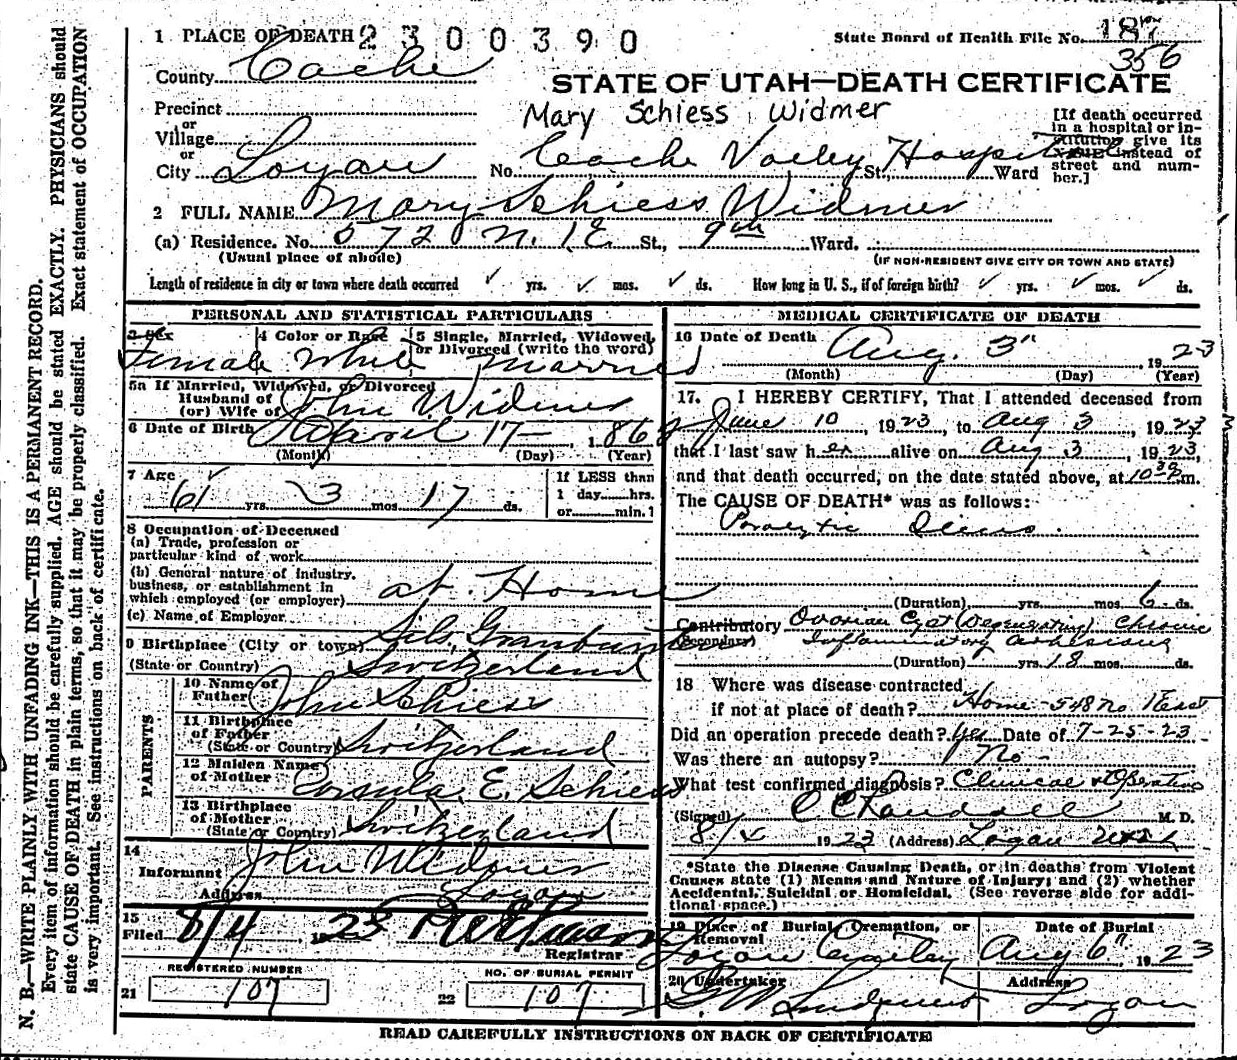 1 PLACE OF DEATH 2300390
State Board of Health File No. 187
356
County Cache
STATE OF UTAH—DEATH CERTIFICATE
Precinct
Mary Schiess Widmer
or
Village
or
City Logan
No. Cache Valley Hospital St., Ward
[If death occurred
in a hospital or in-
stitution give its
NAME instead of
street and num-
ber.]
2 FULL NAME Mary Schiess Widmer
(a) Residence. No. 572 N. 1 E. St., 9th Ward.
(Usual place of abode)
(IF NON-RESIDENT GIVE CITY OR TOWN AND STATE)
Length of residence in city or town where death occurred yrs. mos. ds. How long in U. S., if of foreign birth? yrs. mos. ds.
PERSONAL AND STATISTICAL PARTICULARS
3 Sex 4 Color or Race 5 Single, Married, Widowed,
or Divorced (write the word)
Female White Married
5a If Married, Widowed, or Divorced
Husband of
(or) Wife of John Widmer
6 Date of Birth April 17 1862
(Month) (Day) (Year)
7 Age
61 yrs. 3 mos. 17 ds.
If LESS than
1 day hrs.
or min.?
8 Occupation of Deceased
(a) Trade, profession or
particular kind of work
(b) General nature of industry,
business, or establishment in
which employed (or employer) at Home
(c) Name of Employer
9 Birthplace (City or town)
(State or Country) Switzerland
PARENTS
10 Name of
Father John Schiess
11 Birthplace
of Father
(State or Country) Switzerland
12 Maiden Name
of Mother Ursula E. Schiess
13 Birthplace
of Mother
(State or Country) Switzerland
14
Informant John Widmer
Address Logan
15
Filed 8/4, 1923
Registrar
REGISTERED NUMBER
21 107
NO. OF BURIAL PERMIT
22 107
MEDICAL CERTIFICATE OF DEATH
16 Date of Death Aug. 3", 1923
(Month) (Day) (Year)
17. I HEREBY CERTIFY, That I attended deceased from
June 10, 1923, to Aug 3, 1923
that I last saw her alive on Aug 3, 1923,
and that death occurred, on the date stated above, at 10 30 m.
The CAUSE OF DEATH* was as follows:
Paralytic Ileus
(Duration) yrs. mos. 6 ds.
Contributory Ovarian Cyst (Degenerating) Chronic
(Secondary) Inflammatory adhesions
(Duration) yrs. 18 mos. ds.
18 Where was disease contracted
if not at place of death? Home - 548 No 1 East
Did an operation precede death? Yes Date of 7-25-23
Was there an autopsy? No
What test confirmed diagnosis? Clinical & Operation
(Signed) C C Randall M. D.
8/4 1923 (Address) Logan Utah
*State the Disease Causing Death, or in deaths from Violent
Causes state (1) Means and Nature of Injury; and (2) whether
Accidental, Suicidal or Homicidal. (See reverse side for addi-
tional space.)
19 Place of Burial, Cremation, or
Removal
Date of Burial
Logan Cemetery Aug 6", 1923
20 Undertaker Address
Logan
READ CAREFULLY INSTRUCTIONS ON BACK OF CERTIFICATE
N. B.—WRITE PLAINLY WITH UNFADING INK—THIS IS A PERMANENT RECORD.
Every item of information should be carefully supplied. AGE should be stated EXACTLY. PHYSICIANS should
state CAUSE OF DEATH in plain terms, so that it may be properly classified. Exact statement of OCCUPATION
is very important. See instructions on back of certificate.